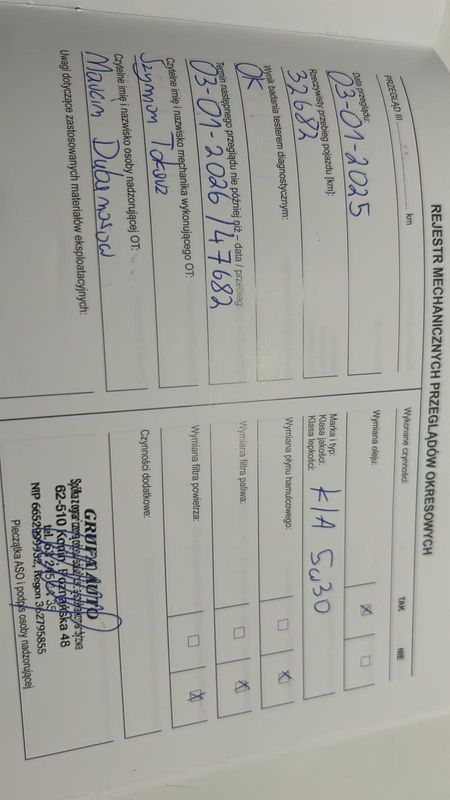 REJESTR MECHANICZNYCH PRZEGLĄDÓW OKRESOWYCH
PRZEGLĄD III
km
Data przeglądu:
03-01-2025
Rzeczywisty przebieg pojazdu [km]:
32682
Wynik badania testerem diagnostycznym:
OK
Termin następnego przeglądu nie później niż - data / przebieg:
03-01-2026/47682
Czytelne imię i nazwisko mechanika wykonującego OT:
Szymon
Czytelne imię i nazwisko osoby nadzorującej OT:
Marcin
Uwagi dotyczące zastosowanych materiałów eksploatacyjnych:
Wykonane czynności: TAK NIE
Wymiana oleju:
Marka i typ:
Klasa jakości:
Klasa lepkości:
KIA 5w30
Wymiana płynu hamulcowego:
Wymiana filtra paliwa:
Wymiana filtra powietrza:
Czynności dodatkowe:
GRUPA AUTO
Spółka z ograniczoną odpowiedzialnością
62-510 Konin, Poznańska 48
NIP Regon 302795855
Pieczątka ASO i podpis osoby nadzorującej